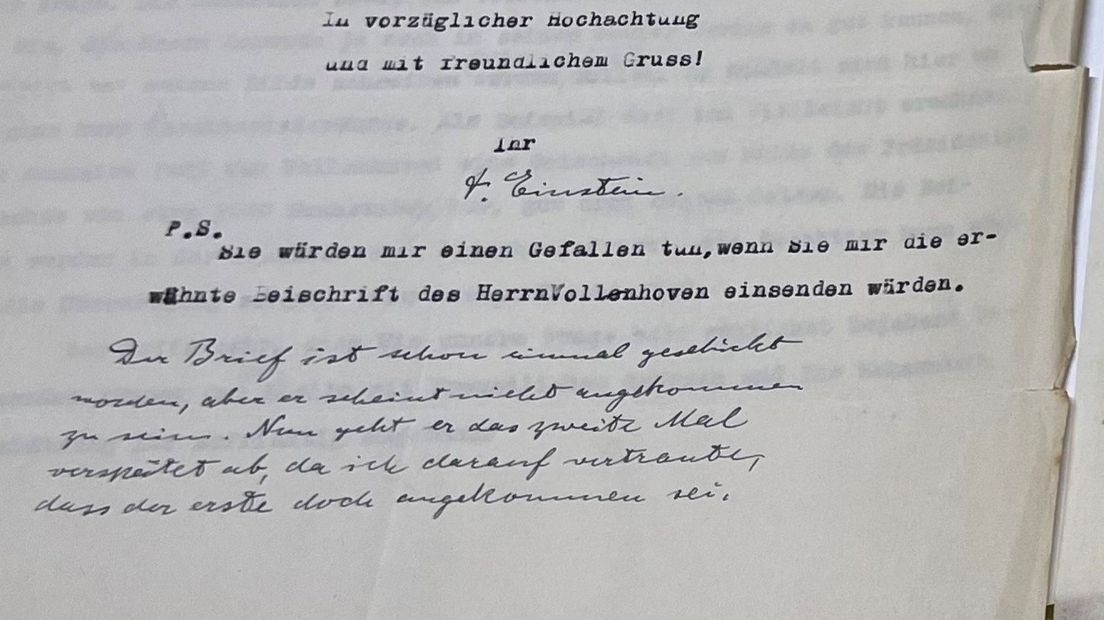 In vorzüglicher Hochachtung
und mit freundlichem Gruss!
Ihr
A. Einstein.
P.S.
Sie würden mir einen Gefallen tun,wenn Sie mir die er-
wähnte Beischrift des HerrnVollenhoven einsenden würden.
Der Brief ist schon einmal geschickt
worden, aber er scheint nicht angekommen
zu sein. Nun geht er das zweite Mal
verspätet ab, da ich darauf vertraute,
dass der erste doch angekommen sei.